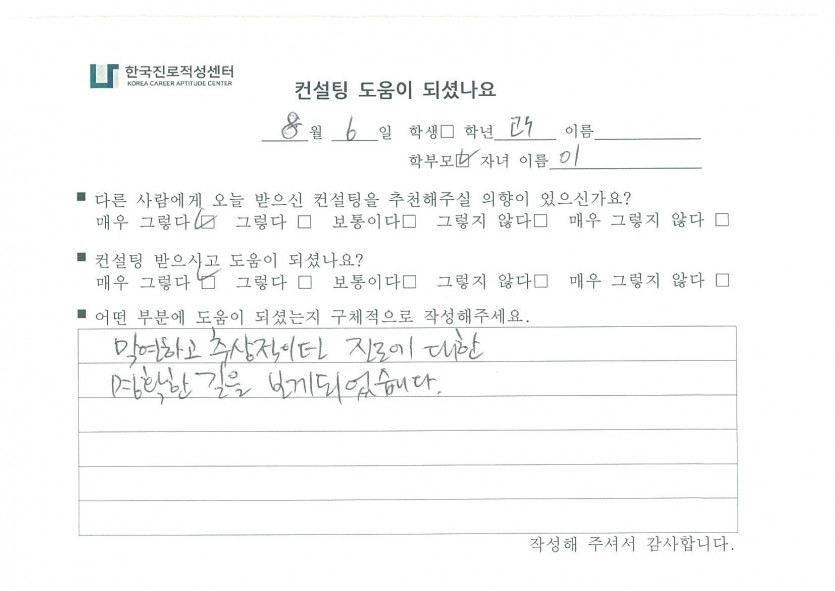 한국진로적성센터
KOREA CAREER APTITUDE CENTER
컨설팅 도움이 되셨나요
8월 6일 학생□ 학년 고3 이름
학부모☑ 자녀 이름 이
■ 다른 사람에게 오늘 받으신 컨설팅을 추천해주실 의향이 있으신가요?
매우 그렇다☑ 그렇다 □ 보통이다□ 그렇지 않다□ 매우 그렇지 않다 □
■ 컨설팅 받으시고 도움이 되셨나요?
매우 그렇다 ☑ 그렇다 □ 보통이다□ 그렇지 않다□ 매우 그렇지 않다 □
■ 어떤 부분에 도움이 되셨는지 구체적으로 작성해주세요.
막연하고 추상적이던 진로에 대한
명확한 길을 보게되었습니다.
작성해 주셔서 감사합니다.